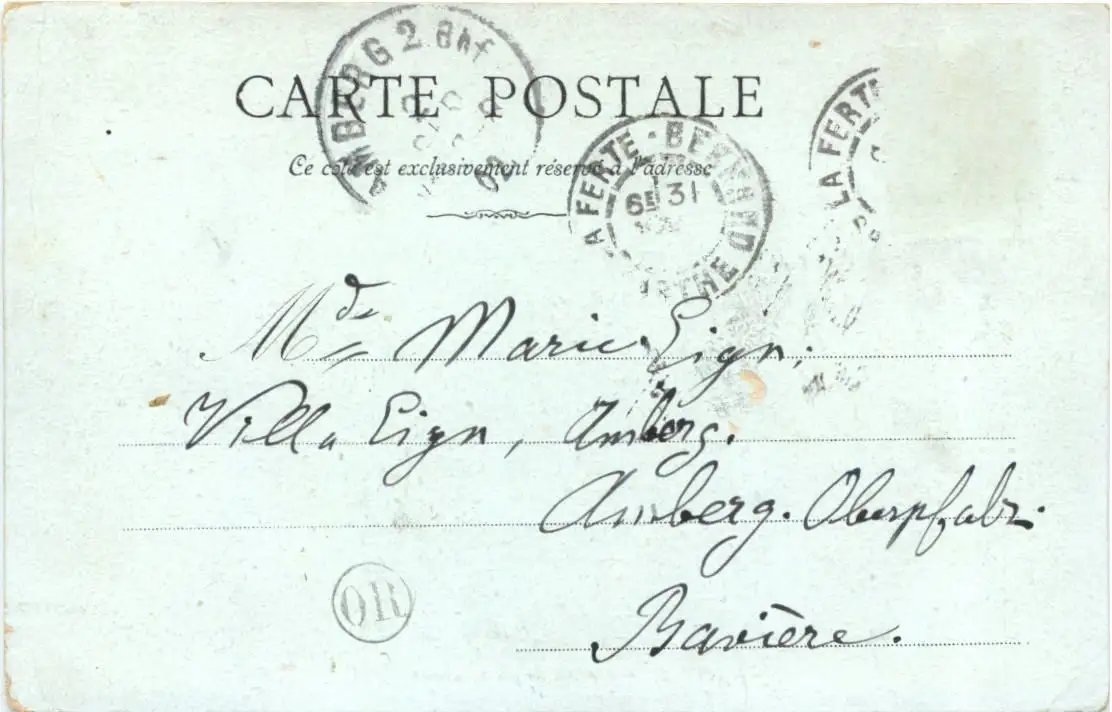 CARTE POSTALE
Ce côté est exclusivement réservé à l'adresse
AMBERG 2 Bhf
02
LA FERTE-BERNARD
6E 31
SARTHE
LA FERTE
Mde Marie Eign.
Villa Eign, Amberg.
Amberg. Oberpfalz.
Bavière.
OR